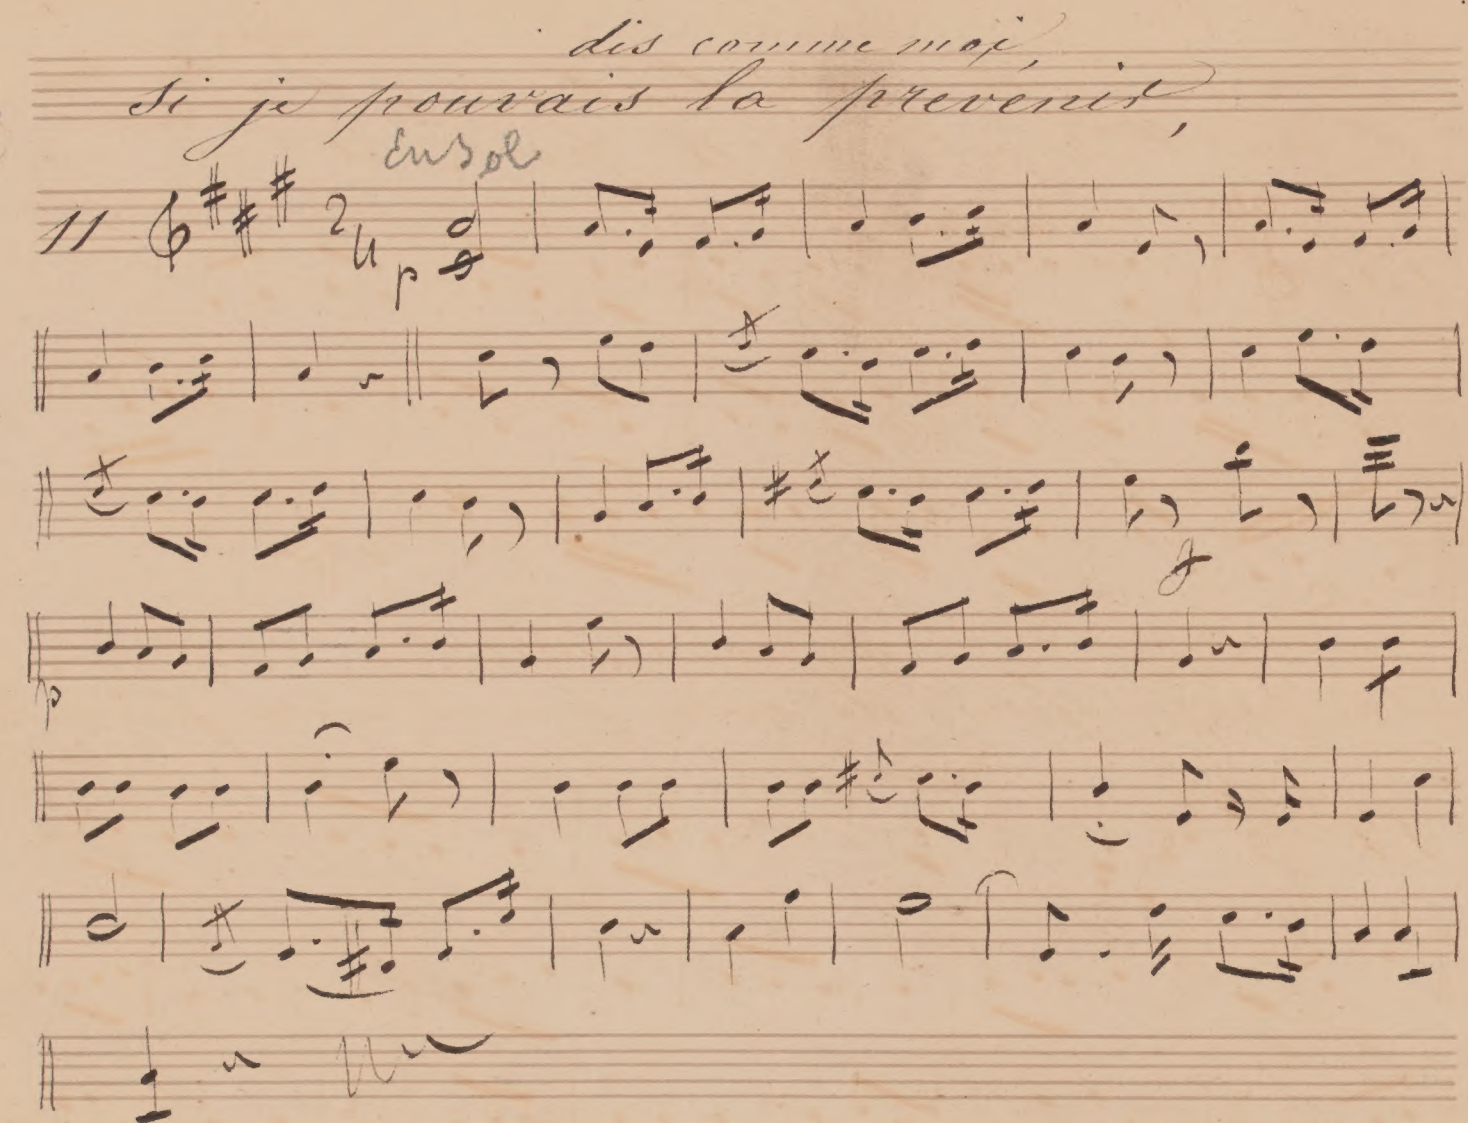 dis comme moi,
si je pouvais la prévenir,
En Sol
11 2 4 p
f
p